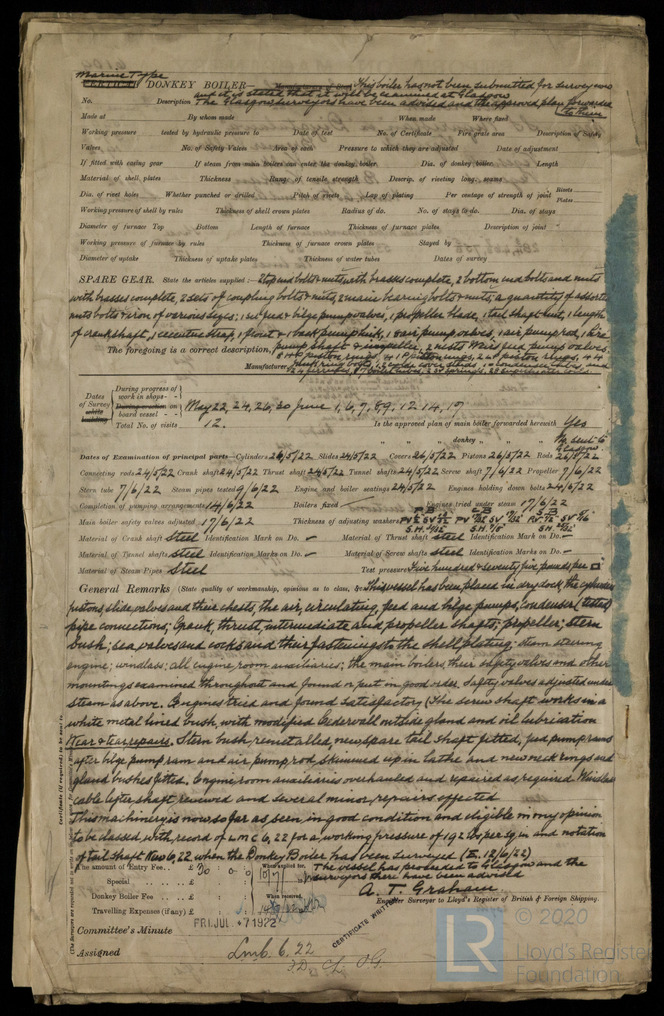 Marine Type
DONKEY BOILER— This boiler has not been submitted for survey
and it is stated that it will be examined at Glasgow
No. Description The Glasgow surveyors have been advised and the approved plan forwarded
to them
Made at By whom made When made Where fixed
Working pressure tested by hydraulic pressure to Date of test No. of Certificate Fire grate area Description of Safety
Valves No. of Safety Valves Area of each Pressure to which they are adjusted Date of adjustment
If fitted with easing gear If steam from main boilers can enter the donkey boiler Dia. of donkey boiler Length
Material of shell plates Thickness Range of tensile strength Descrip. of riveting long. seams
Dia. of rivet holes Whether punched or drilled Pitch of rivets Lap of plating Per centage of strength of joint Rivets Plates
Working pressure of shell by rules Thickness of shell crown plates Radius of do. No. of stays to do. Dia. of stays
Diameter of furnace Top Bottom Length of furnace Thickness of furnace plates Description of joint
Working pressure of furnace by rules Thickness of furnace crown plates Stayed by
Diameter of uptake Thickness of uptake plates Thickness of water tubes Dates of survey
SPARE GEAR. State the articles supplied:— 2 top end bolts & nuts with brasses complete, 2 bottom end bolts and nuts
with brasses complete, 2 sets of coupling bolts & nuts, 2 main bearing bolts & nuts, a quantity of assorted
nuts bolts & iron of various sizes; 1 set feed & bilge pump valves, 1 propeller blade, 1 tail shaft, 1 length
of crankshaft, 1 eccentric strap, 1 air pump valves, 1 air pump rod, 1
pump shaft & impeller, 2 nests Weirs feed pump valves
The foregoing is a correct description,
Manufacturer.
Dates of Survey while building
During progress of work in shops - -
During erection on board vessel - - -
May 22, 24, 26, 30 June 1, 6, 7, 8, 9, 12, 14, 17
Total No. of visits 12. Is the approved plan of main boiler forwarded herewith Yes
" " " donkey " " " No. sent to Glasgow
Dates of Examination of principal parts—Cylinders 26/5/22 Slides 24/5/22 Covers 26/5/22 Pistons 26/5/22 Rods 26/5/22
Connecting rods 24/5/22 Crank shaft 24/5/22 Thrust shaft 24/5/22 Tunnel shafts 24/5/22 Screw shaft 7/6/22 Propeller 7/6/22
Stern tube 7/6/22 Steam pipes tested 9/6/22 Engine and boiler seatings 24/5/22 Engines holding down bolts 24/5/22
Completion of pumping arrangements 14/6/22 Boilers fixed Engines tried under steam 17/6/22
Main boiler safety valves adjusted 17/6/22 Thickness of adjusting washers
Material of Crank shaft Steel Identification Mark on Do. — Material of Thrust shaft Steel Identification Mark on Do. —
Material of Tunnel shafts Steel Identification Marks on Do. — Material of Screw shafts Steel Identification Marks on Do. —
Material of Steam Pipes Steel Test pressure Five hundred & seventy five pounds per □
General Remarks (State quality of workmanship, opinions as to class, &c. This vessel has been placed in dry dock, the cylinders
pistons, slide valves and their chests, the air, circulating, feed and bilge pumps, condenser (tested)
pipe connections; Crank, thrust, intermediate and propeller shafts; propeller; Stern
bush; sea valves and cocks and their fastenings to the shell plating; steam steering
engine; windlass; all engine room auxiliaries; the main boilers, their safety valves and other
mountings examined throughout and found or put in good order. Safety valves adjusted under
steam as above. Engines tried and found satisfactory (The screw shaft works in a
white metal lined bush, with modified Cederwall outside gland and oil lubrication
Wear & tear repairs. Stern bush, remetalled, new spare tail shaft fitted, feed pump rams
after bilge pump ram and air pump rod, skimmed up in lathe and new neck rings and
gland bushes fitted. Engine room auxiliaries overhauled and repaired as required. Windlass
cable lifter shaft renewed and several minor repairs effected
This machinery is now so far as seen, in good condition and eligible in my opinion
to be classed, with record of LMC 6,22 for a working pressure of 192 lbs per sq. in and notation
of tail shaft New 6,22 when the Donkey Boiler has been surveyed (E. 12/6/22)
The amount of Entry Fee . . £ When applied for,
The vessel has proceeded to Glasgow and the
Special . . . . £
surveyors there have been advised
Donkey Boiler Fee . . . £ When received,
A. T. Graham
Travelling Expenses (if any) £
Engineer Surveyor to Lloyd's Register of British & Foreign Shipping.
Committee's Minute FRI. JUL. 7 1922
CERTIFICATE WRITTEN
Assigned Lmb. 6. 22
Certificate (if required) to be sent to
LR © 2020
Lloyd's Register
Foundation